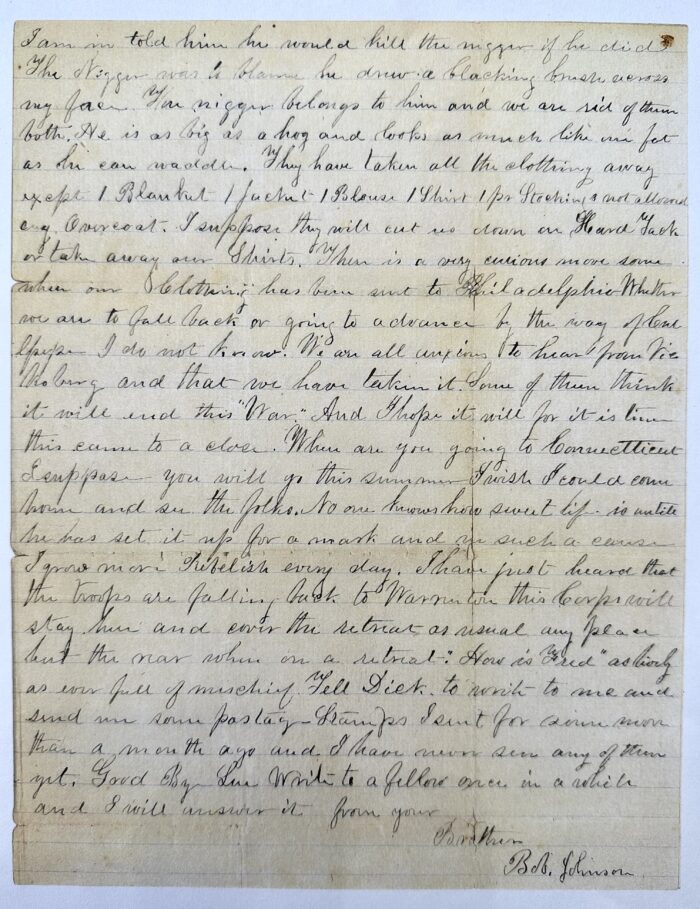 I am in told him he would kill the nigger if he did
The Nigger was to blame he drew a blacking brush across
my face. You nigger belongs to him and we are rid of them
both. He is as big as a hog and looks as much like one fat
as he can waddle. They have taken all the clothing away
except 1 Blanket 1 Jacket 1 Blouse 1 Shirt 1 pr Stockings not allowed
any Overcoat. I suppose they will cut us down on Hard Tack
or take away our Shirts. Their is a very curious move some
when our Clothing has been sent to Philadelphia Whether
we are to fall back or going to advance by the way of Cul
lpeper I do not know. We are all anxious to hear from Vic
ksburg and that we have taken it. Some of them think
it will end this "War." And I hope it will for it is time
this came to a close. When are you going to Connectticut
I suppose you will go this summer I wish I could come
home and see the folks. No one knows how sweet life is untile
he has set it up for a mark and in such a cause
I grow more every day. I have just heard that
the troops are falling back to Warrenton this Corps will
stay here and cover the retreat as usual any place
but the rear when on a retreat". How is "Fred" as lively
as ever full of mischief. Tell Dick to write to me and
send me some postage Stamps I sent for some more
than a month ago and I have never seen any of them
yet. Good By Sue Write to a fellow once in a while
and I will answer it from your
Brother
Bob. Johnson